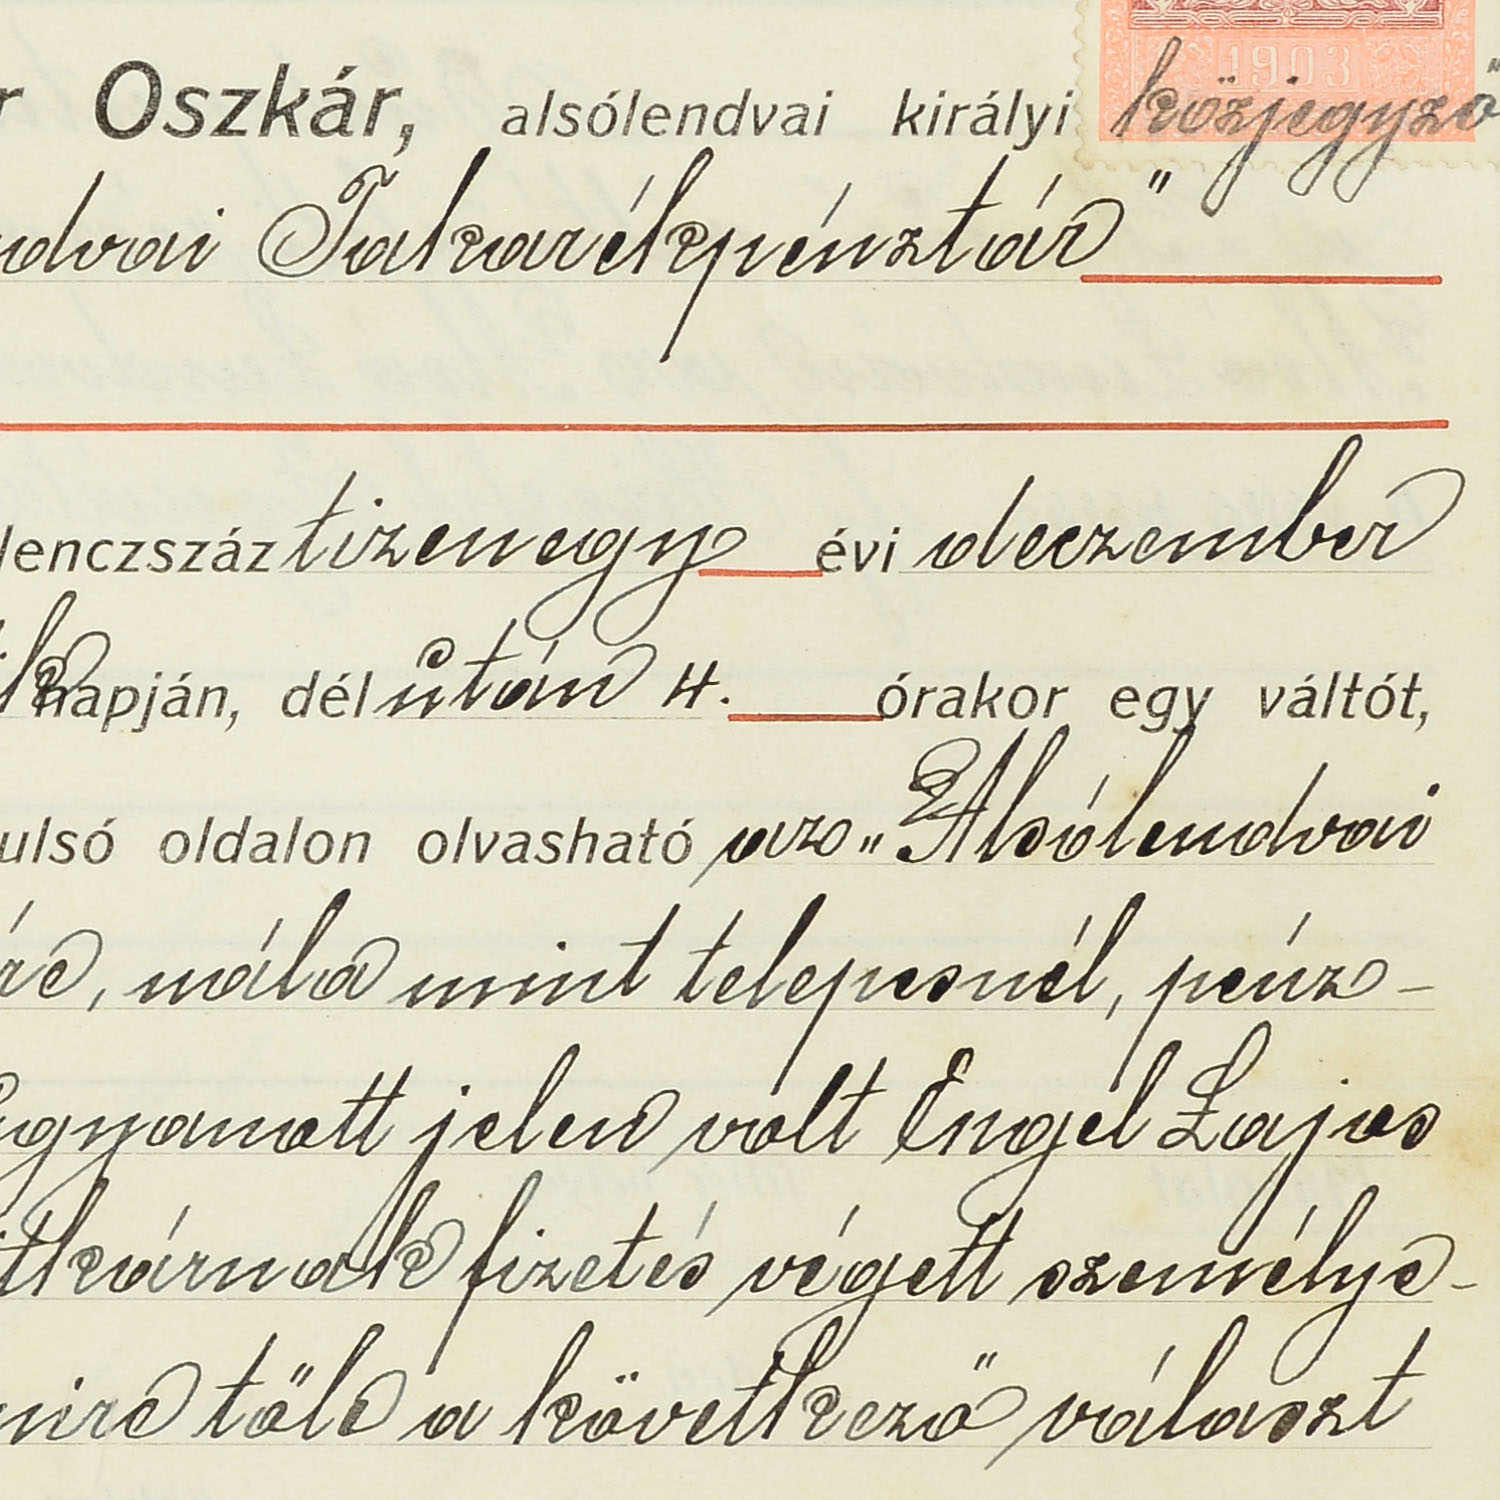 r Oszkár, alsólendvai királyi közjegyző
ndvai Takarékpénztár"
1903
lenczszáz tizenegy évi deczember
ik napján, dél után 4. órakor egy váltót,
ulsó oldalon olvasható az „Alsólendvai
re, nála mint telepesnél, pénz-
Egyanott jelen volt Engel Lajos
itkárnak fizetés végett személye-
mire tőle a következő választ